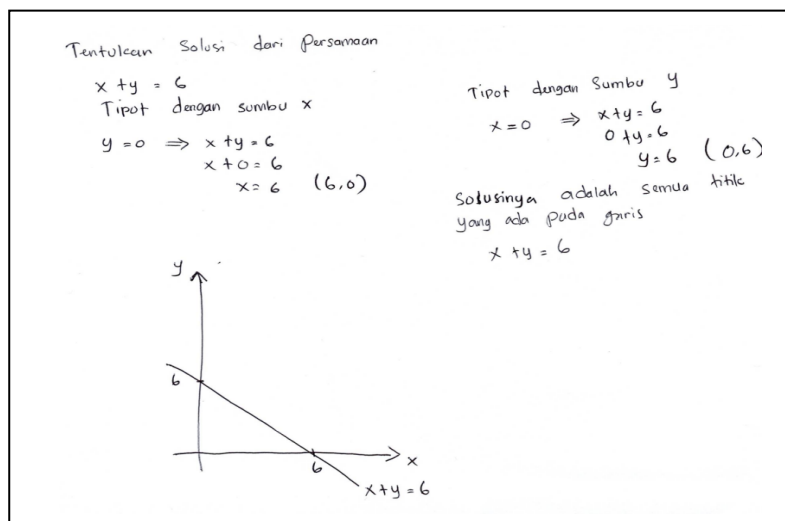 Tentukan Solusi dari Persamaan
x + y = 6
Tipot dengan sumbu x
y = 0 ⇒ x + y = 6
x + 0 = 6
x = 6 (6,0)
Tipot dengan Sumbu y
x = 0 ⇒ x + y = 6
0 + y = 6
y = 6 (0,6)
Solusinya adalah semua titik
yang ada pada garis
x + y = 6
y
6
6
x
x + y = 6